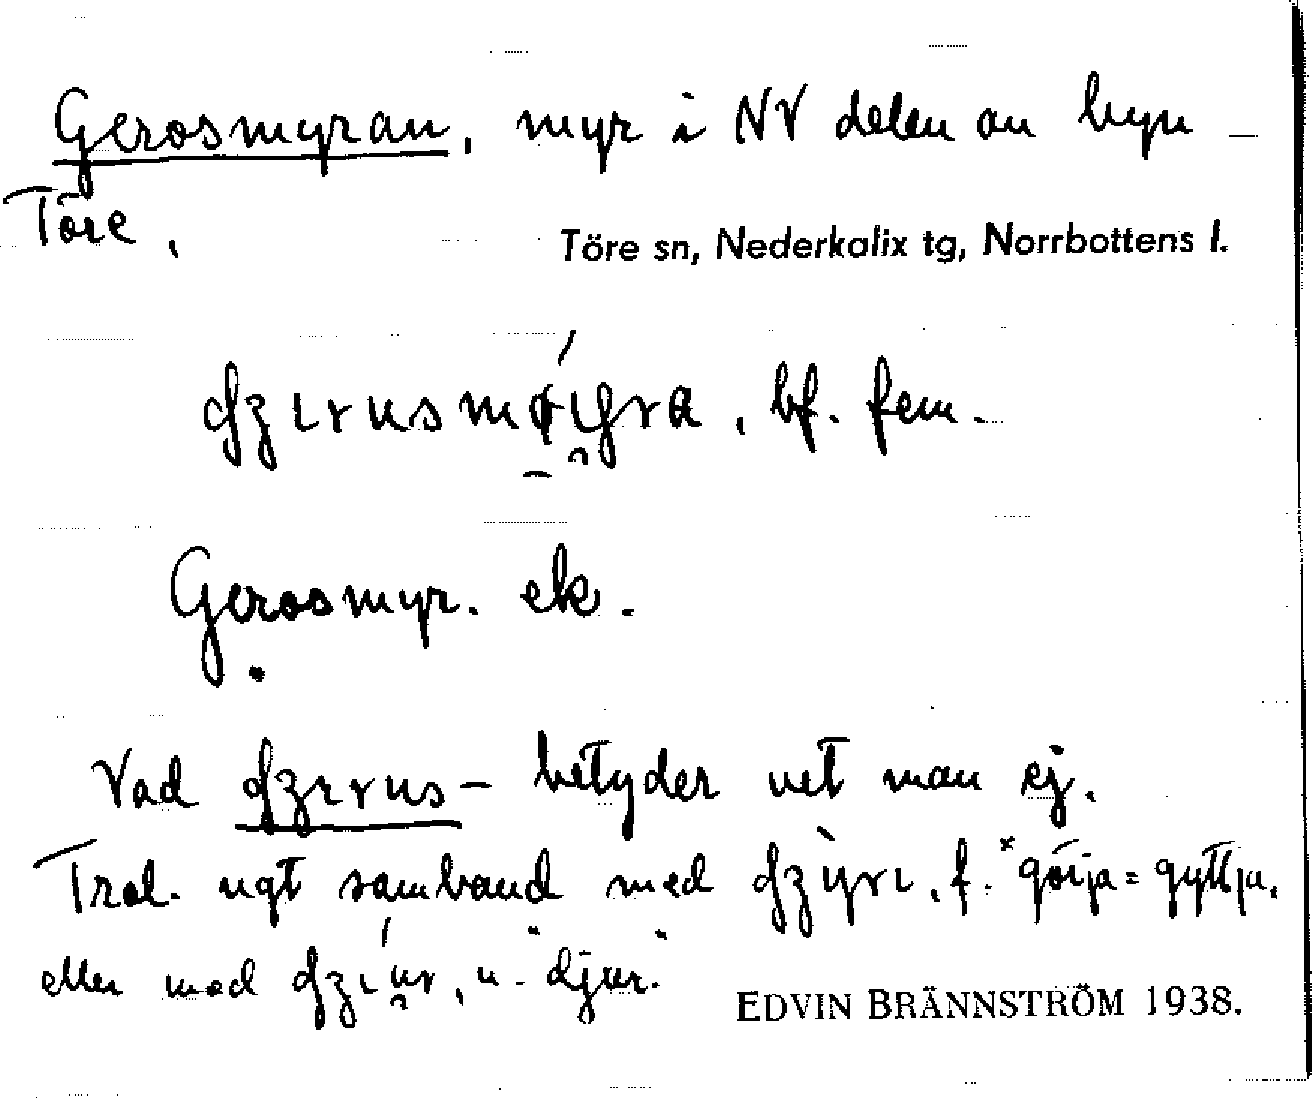 Gerosmyran, myr i NV delen av byn
Töre.
Töre sn, Nederkalix tg, Norrbottens l.
bf. fem.
Gerosmyr. ek.
Vad betyder vet man ej.
Trol. ngt samband med f. *görja = gyttja,
eller med n. "djur."
EDVIN BRÄNNSTRÖM 1938.